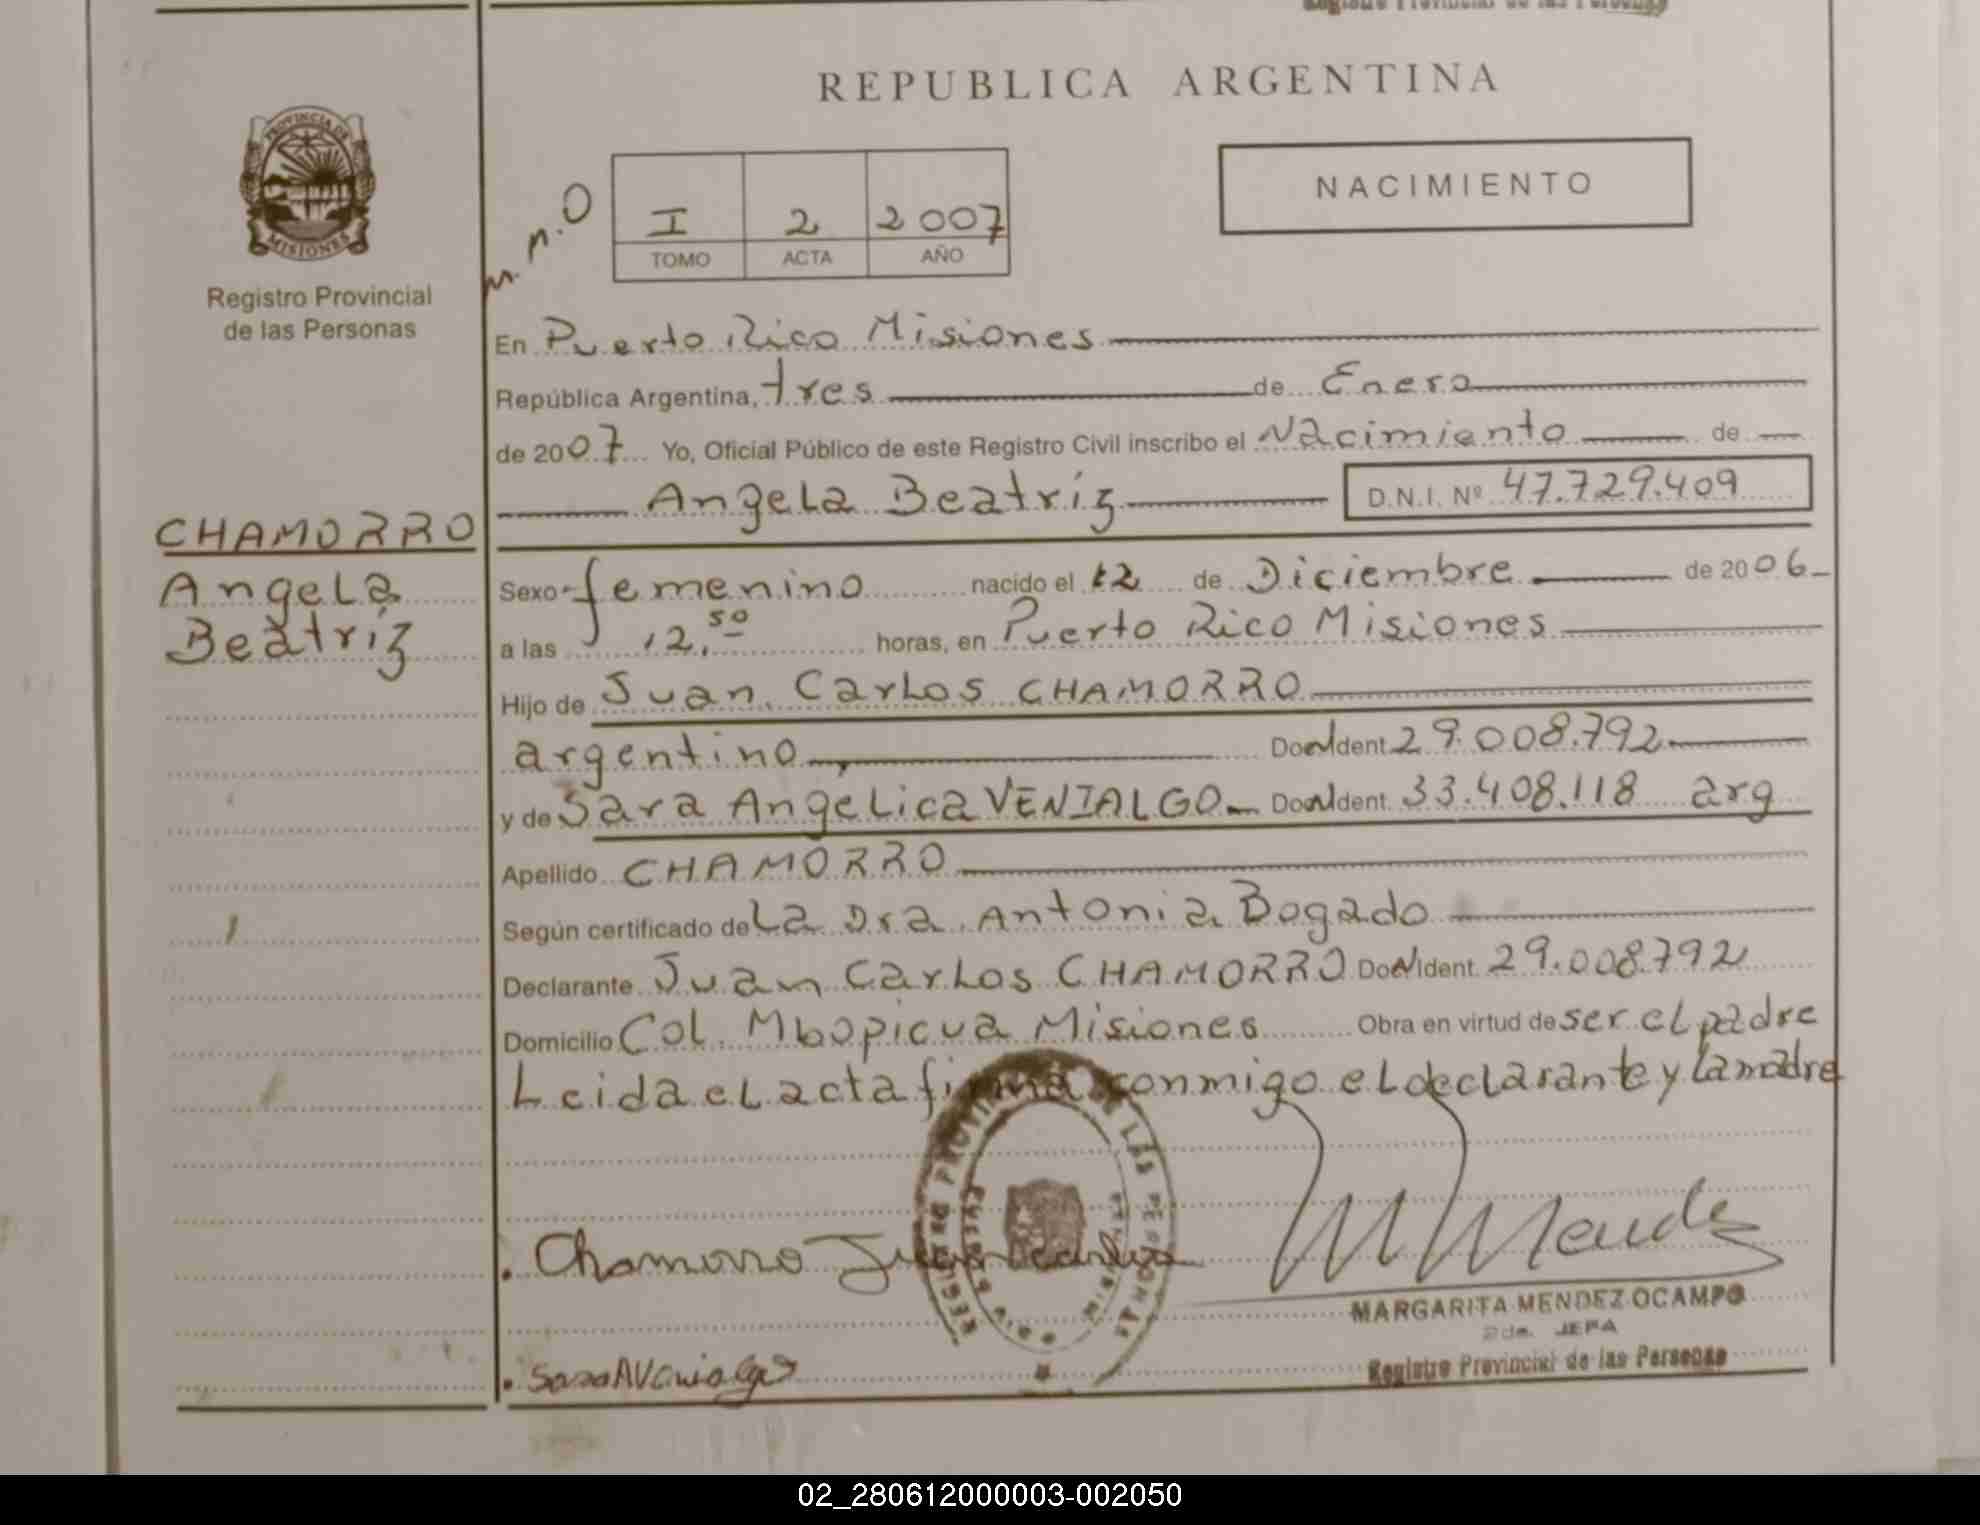 Registro Provincial de las Personas
REPUBLICA ARGENTINA
PROVINCIA DE
MISIONES
Registro Provincial
de las Personas
I 2 2007
TOMO ACTA AÑO
NACIMIENTO
En Puerto Rico Misiones
República Argentina, tres de Enero
de 2007 Yo, Oficial Público de este Registro Civil inscribo el Nacimiento de
Angela Beatríz D.N.I. Nº 47.729.409
CHAMORRO
Angela
Beatríz
Sexo femenino nacido el 12 de Diciembre de 2006
a las 12.50 horas, en Puerto Rico Misiones
Hijo de Juan Carlos CHAMORRO
argentino, Doc Ident. 29.008.792
y de Sara Angelica VENIALGO Doc Ident. 33.408.118 arg
Apellido CHAMORRO
Según certificado de La Dra. Antonia Bogado
Declarante Juan Carlos CHAMORRO Doc Ident. 29.008.792
Domicilio Col. Mbopicua Misiones Obra en virtud de ser el padre
Leida el acta firma conmigo el declarante y la madre
REGISTRO PROVINCIAL DE LAS PERSONAS
Chamorro Juan Carlos
M Mendez
MARGARITA MENDEZ OCAMPO
2da. JEFA
Registro Provincial de las Personas
Sara A Venialgo
02_280612000003-002050